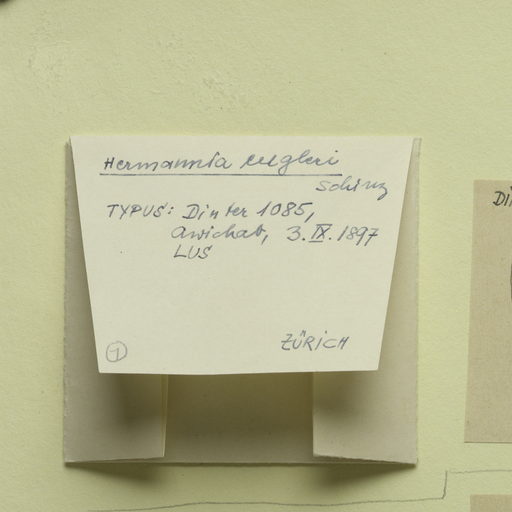 Hermannia eugleri
Schinz
TYPUS: Dinter 1085,
Awichab, 3.IX.1897
LUS
1
ZÜRICH